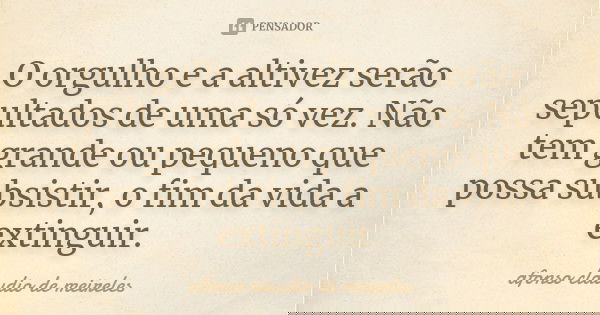 PENSADOR
O orgulho e a altivez serão
sepultados de uma só vez. Não
tem grande ou pequeno que
possa subsistir, o fim da vida a
extinguir.
afonso cláudio de meireles